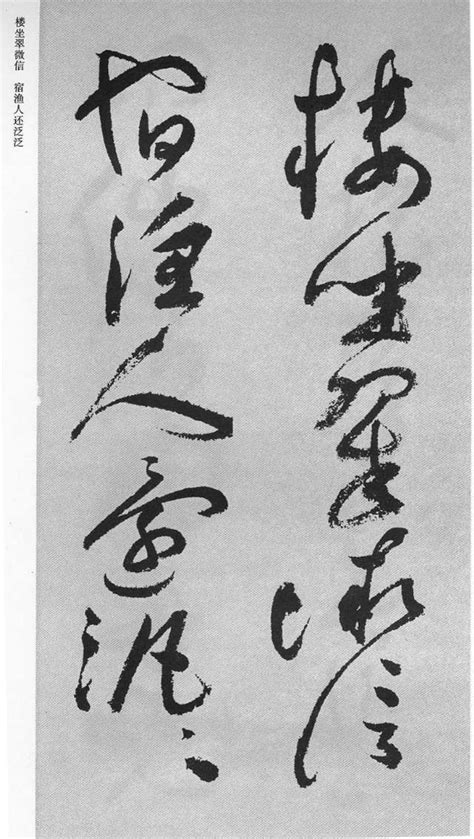 楼坐翠微信
宿渔人还泛泛
樓坐翠微信
宿漁人還泛〻